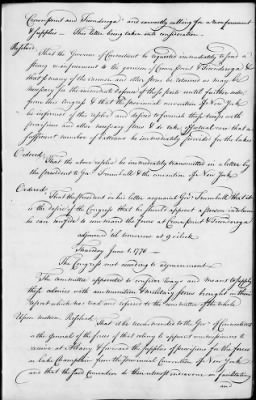 Crownpoint and Ticonderoga and earnestly calling for a reinforcement
& supplies - This letter being taken into consideration.
Resolved
That the Governor of Connecticut be requested immediately to send a
strong reinforcement to the garrison of Crownpoint & Ticonderoga &
that so many of the cannon and other stores be retained as may be
necessary for the immediate defence of those posts until farther order
from this Congress & that the provincial convention of New York
be informed of this resolve and desired to furnish those troops with
provisions and other necessary stores & to take effectual care that a
sufficient number of batteaus be immediately provided for the lakes
Ordered
That the above resolve be immediately transmitted in a letter by
the president to Gov. Trumbull & the convention of New York
Ordered,
That the President in his letter acquaint Gov. Trumbull that it
is the desire of the Congress that he should appoint a person in whom
he can confide to command the forces at Crownpoint & Ticonderoga
adjourned till tomorrow at 9 o'Clock
Thursday June 1. 1775
The Congress met according to adjournment.
The committee appointed to consider ways and means to supply
these colonies with ammunition & military stores brought in their
report which was read and referred to the committee of the whole
Upon motion Resolved,
That it be recommended to the Gov. of Connecticut
the General of the forces of that colony to appoint commissaries to
receive at Albany & forward the supplies of provisions for the forces
on lake Champlain from the provincial Convention of New York
and that the said Convention use their utmost endeavours in facilitating
and